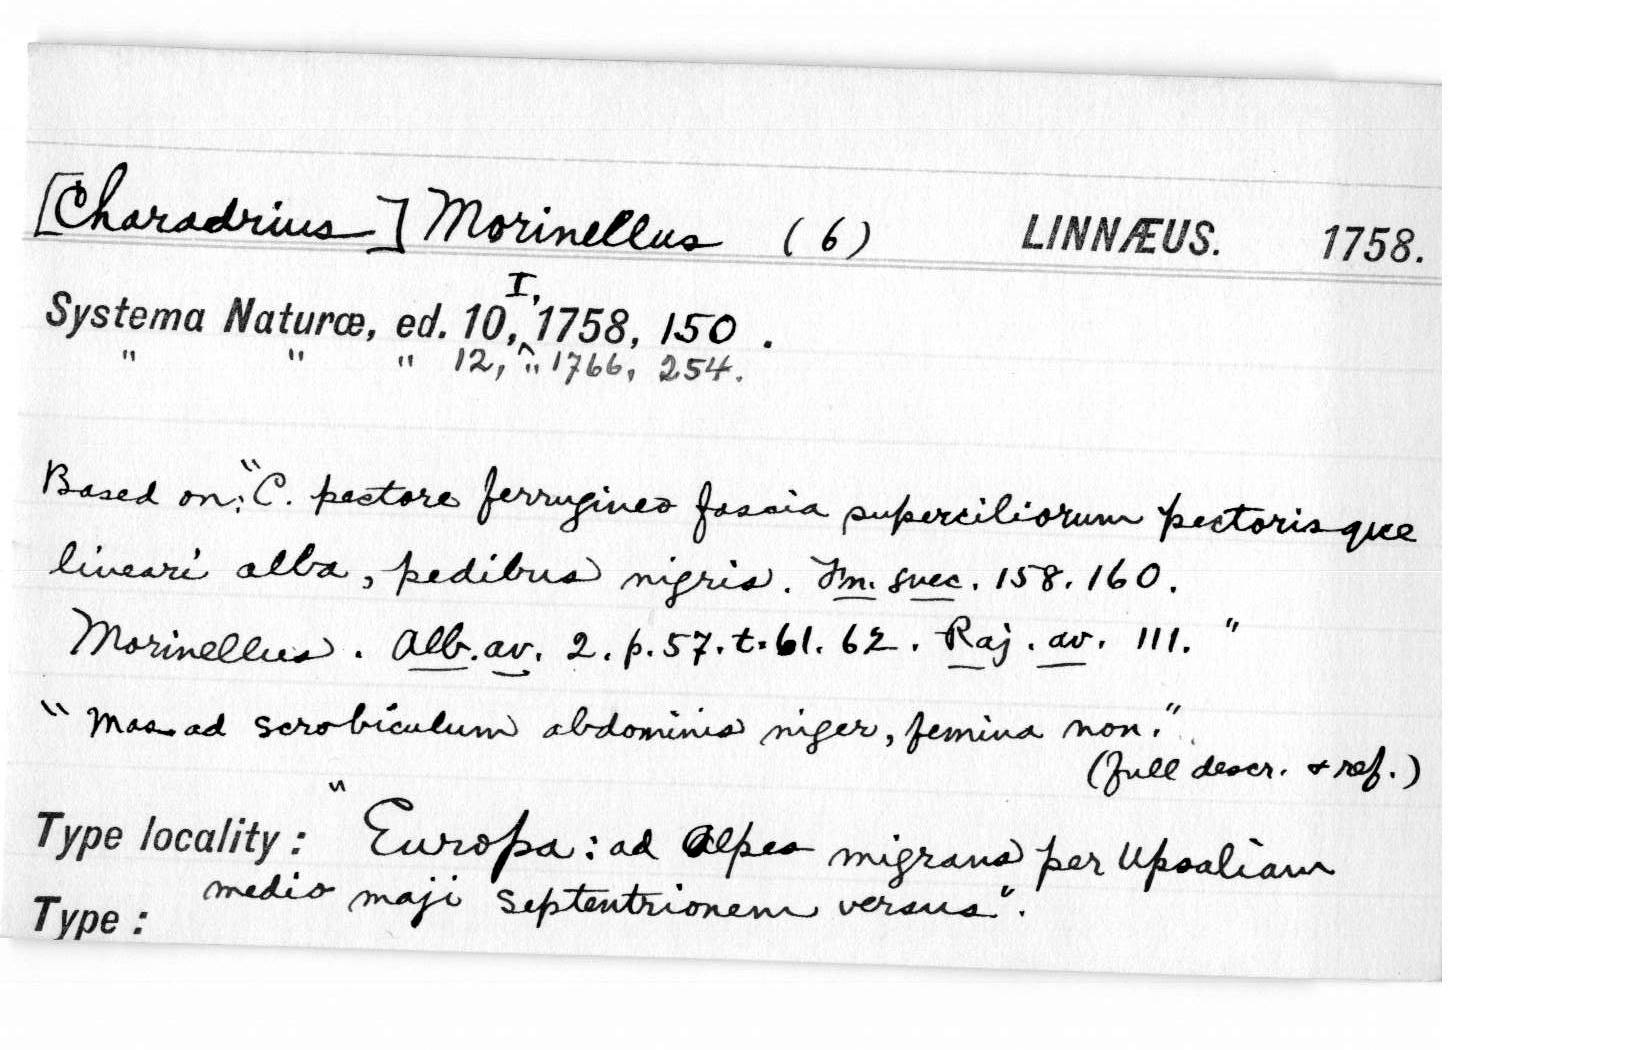 [Charadrius] Morinellus (6) LINNÆUS. 1758.
Systema Naturæ, ed. 10, I, 1758, 150.
" " " 12, " 1766, 254.
Based on: "C. pectore ferrugineo fascia superciliorum pectorisque
lineari alba, pedibus nigris. Fn. svec. 158. 160.
Morinellus. Alb. av. 2. p. 57. t. 61. 62. Raj. av. 111."
"Mas ad scrobiculum abdominis niger, femina non."
(full descr. & ref.)
Type locality: "Europa: ad Alpes migrans per Upsaliam
medio maji septentrionem versus".
Type: